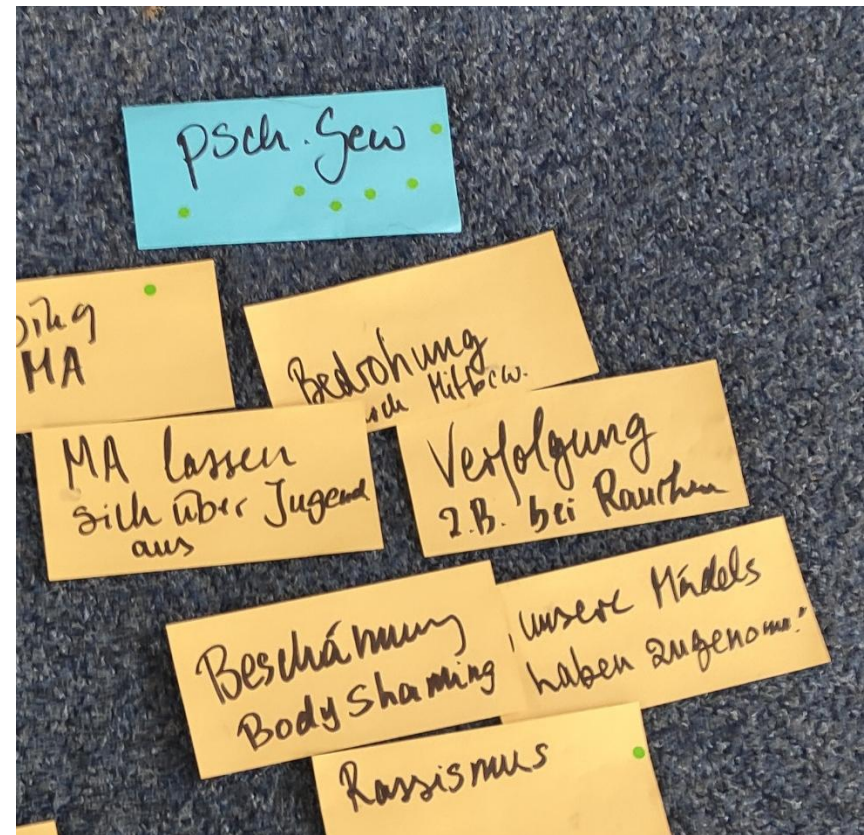 psch. Gew
MA
Bedrohung
Mitbew.
MA lassen
sich über Jugend
aus
Verfolgung
z.B. bei Rauchen
Beschämung
Body Shaming
"unsere Mädels
haben zugenomm."
Rassismus